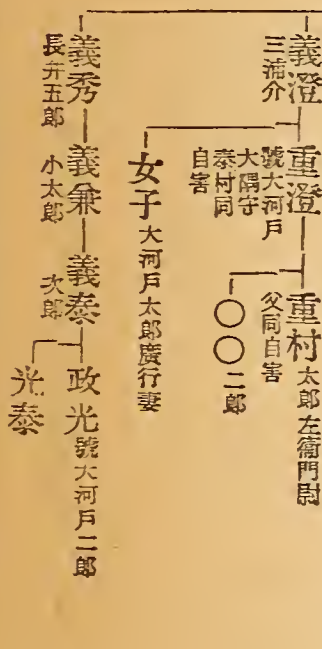 義澄
三浦介
重澄
號大河戶
大隅守
泰村同
自害
重村 太郎左衛門尉
父同自害
〇〇二郎
女子 大河戶太郎廣行妻
義秀
長井五郎
義兼
小太郎
義泰
次郎
政光 號大河戶二郎
光泰